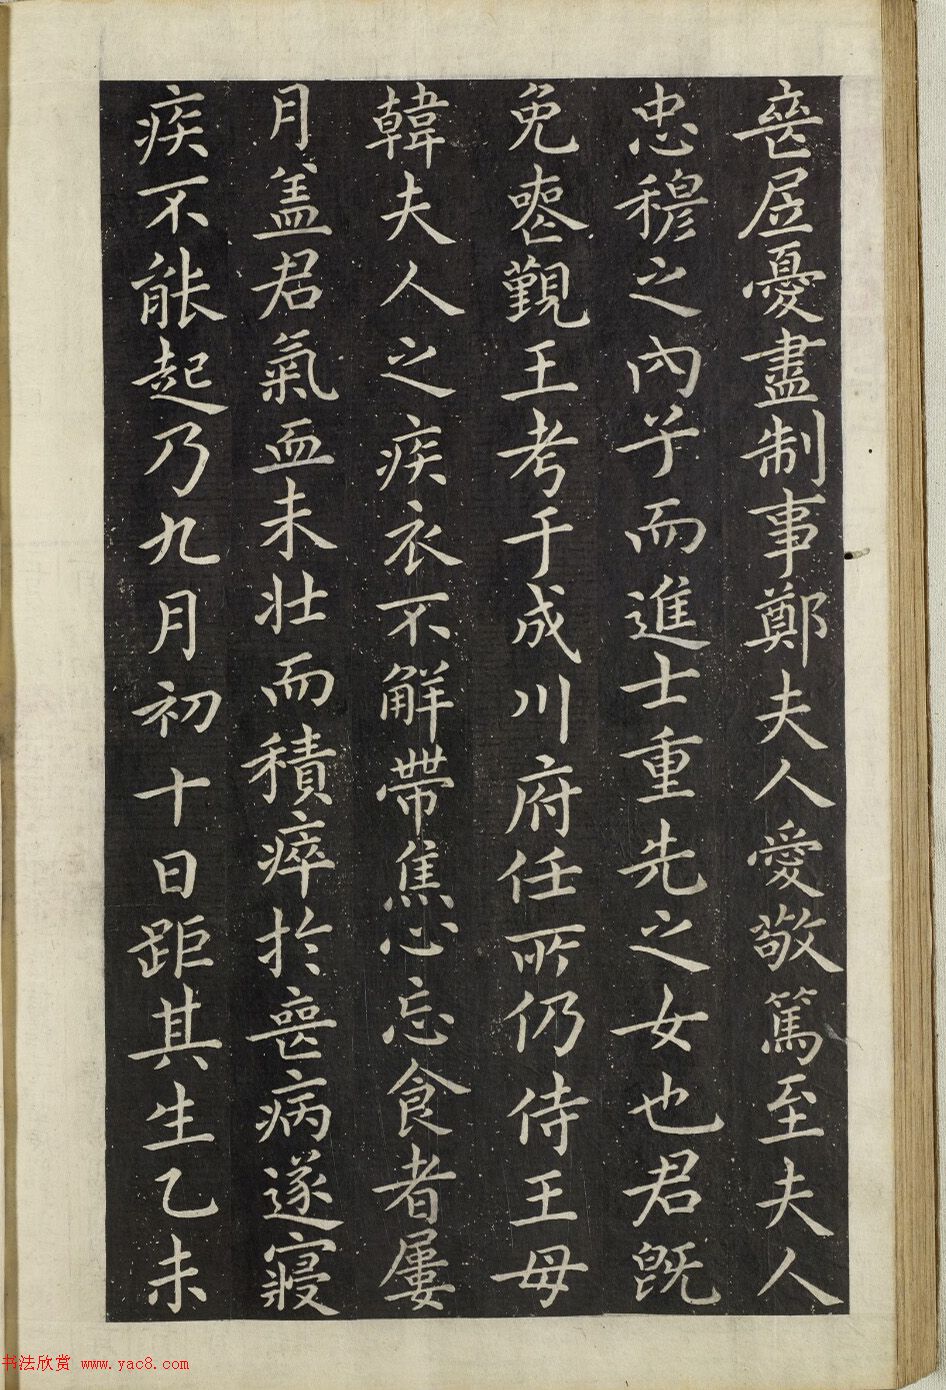 喪居憂盡制事鄭夫人愛敬篤至夫人
忠穆之內子而進士重先之女也君既
免喪觀王考于成川府任所仍侍王母
韓夫人之疾衣不解帶焦心忘食者屢
月盖君氣血未壯而積瘁於喪病遂寢
疾不能起乃九月初十日距其生乙未
书法欣赏 www.yac8.com